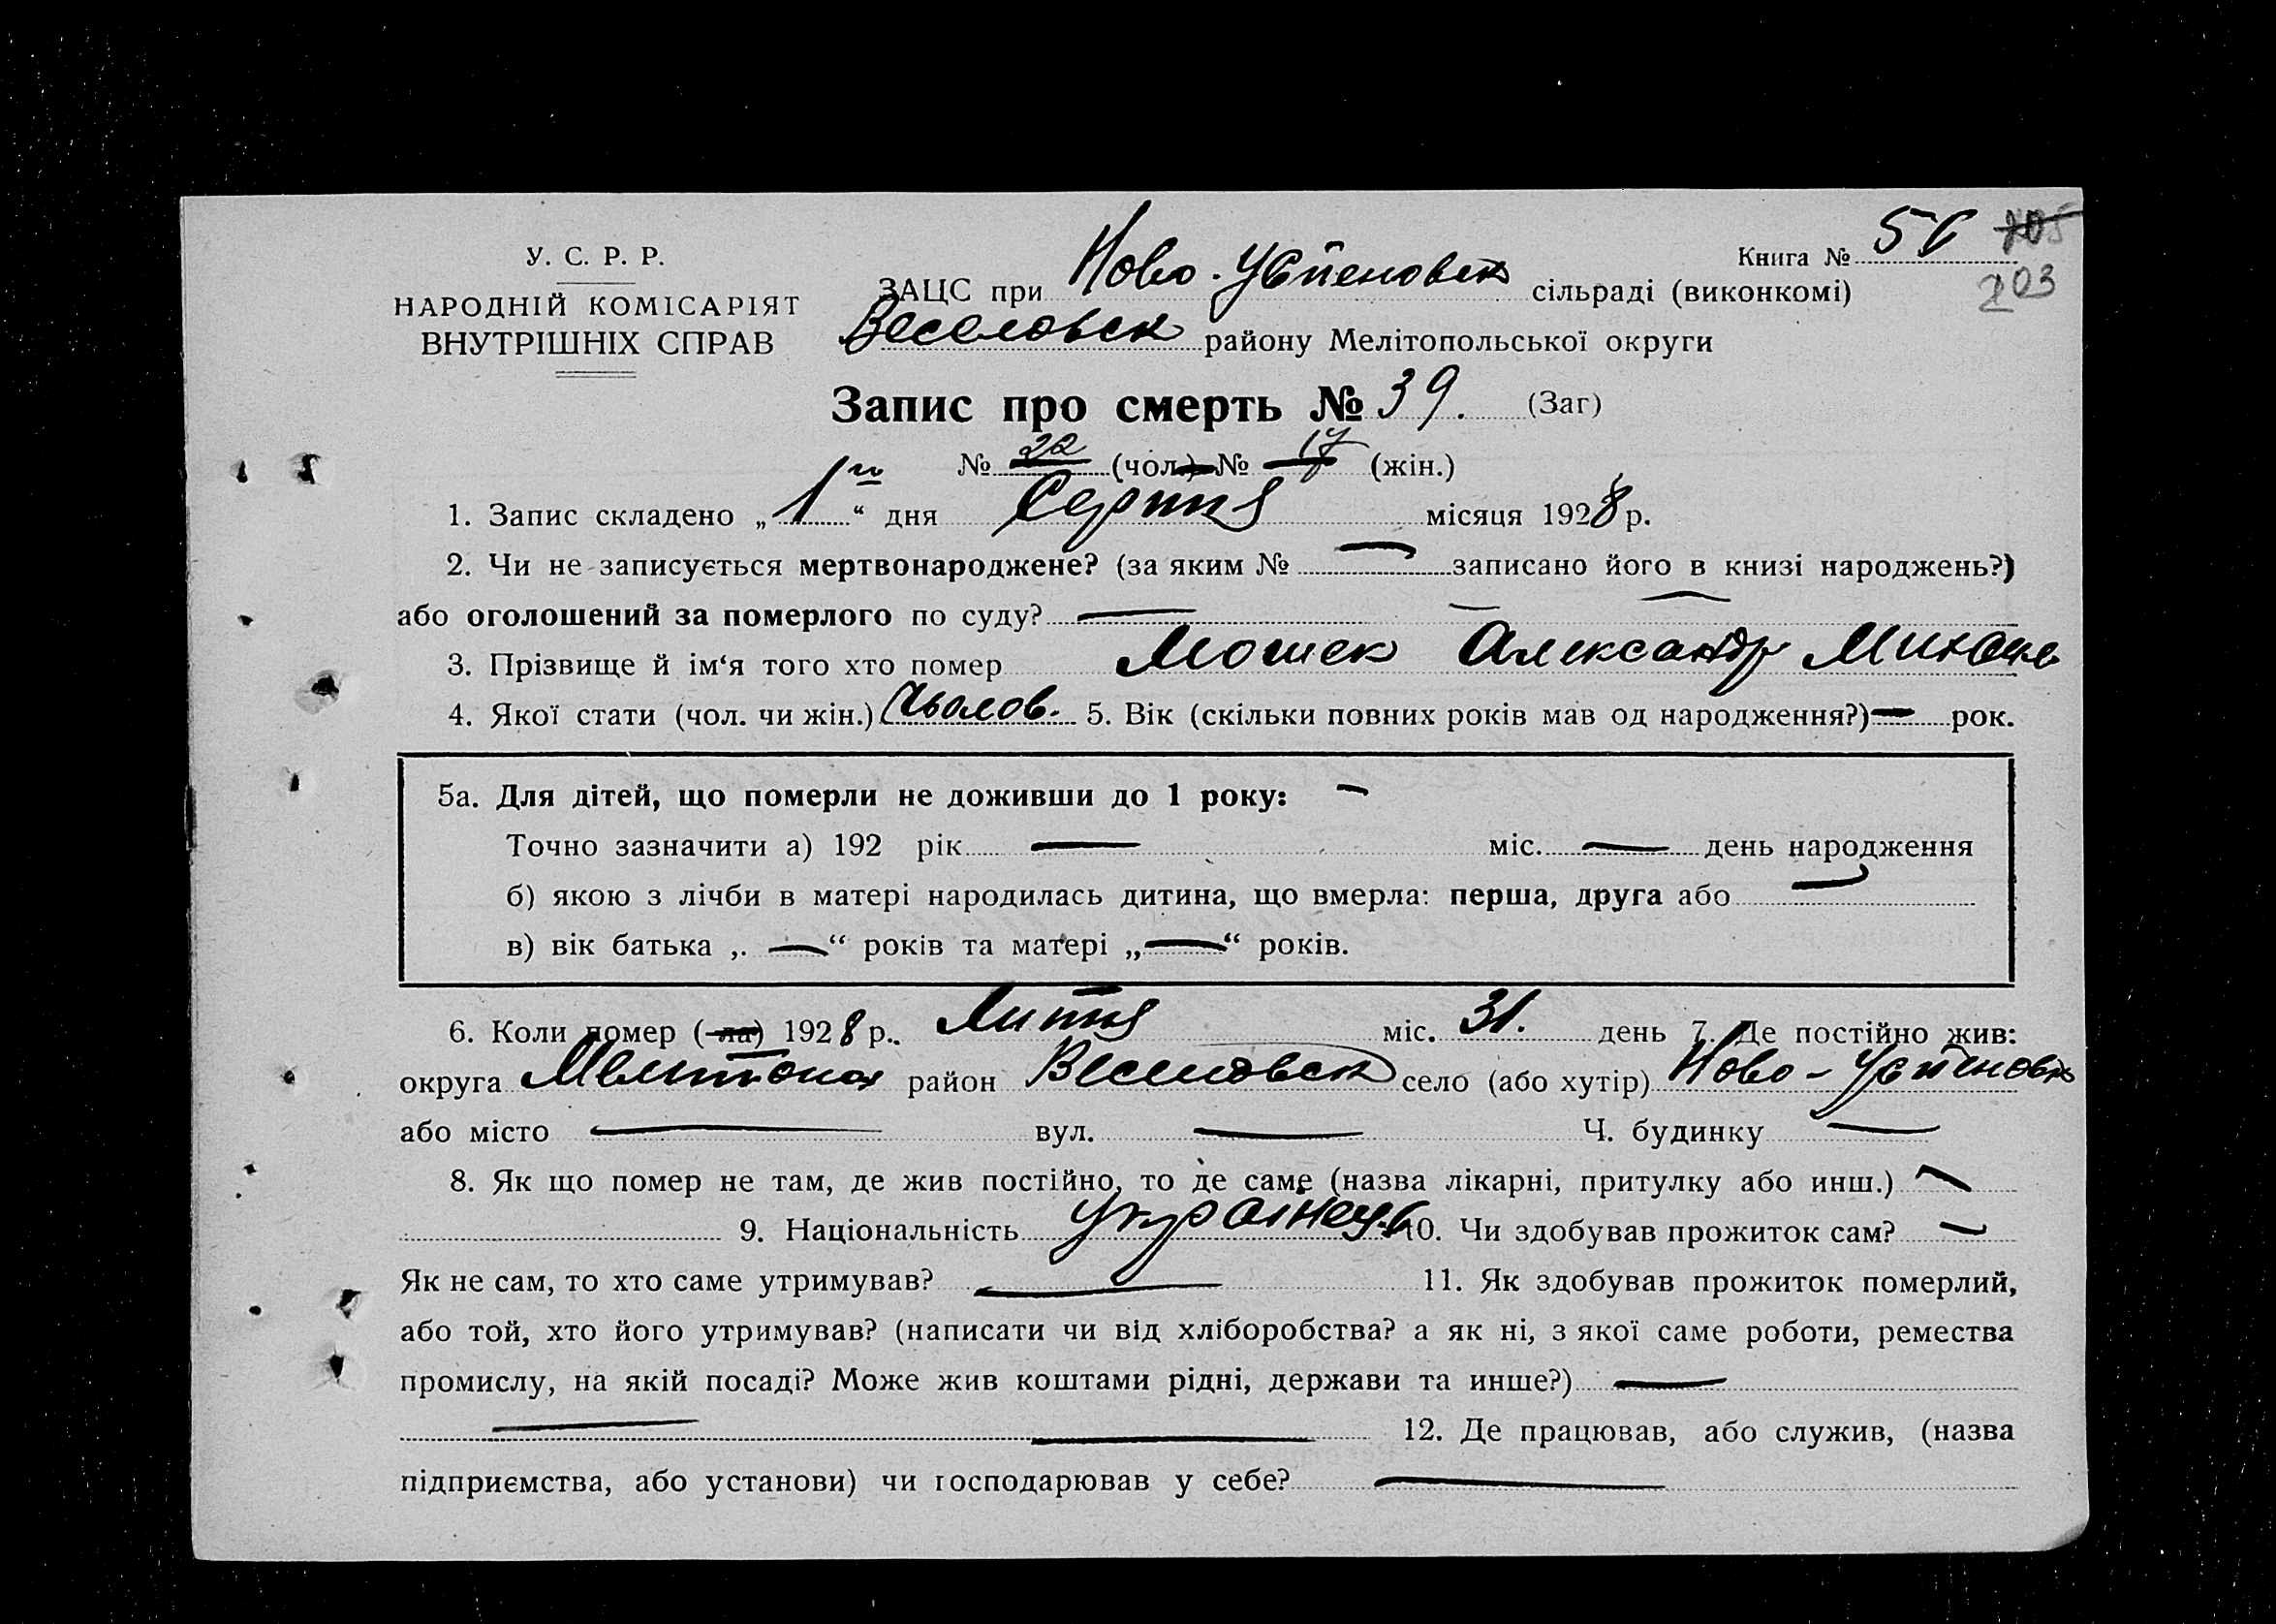 У. С. Р. Р.
НАРОДНІЙ КОМІСАРІЯТ
ВНУТРІШНІХ СПРАВ
Книга №
203
ЗАЦС при Ново-Успеновск сільраді (виконкомі)
Веселовск району Мелітопольської округи
Запис про смерть № 39. (Заг)
№ 22 (чол.) № 17 (жін.)
1. Запис складено „1го“ дня Серпня місяця 1928 р.
2. Чи не записується мертвонароджене? (за яким № — записано його в книзі народжень?)
або оголошений за померлого по суду? —
3. Прізвище й ім‘я того хто помер Мошек Александр
4. Якої стати (чол. чи жін.) Чолов. 5. Вік (скільки повних років мав од народження?) — рок.
5а. Для дітей, що померли не доживши до 1 року: —
Точно зазначити а) 192 рік — міс. — день народження
б) якою з лічби в матері народилась дитина, що вмерла: перша, друга або —
в) вік батька „ — “ років та матері „ — “ років.
6. Коли помер (ла) 1928 р. Липня міс. 31. день 7. Де постійно жив:
округа район Веселовск село (або хутір) Ново-Успеновк
або місто — вул. — Ч. будинку —
8. Як що помер не там, де жив постійно, то де саме (назва лікарні, притулку або инш.) —
9. Національність Українец 10. Чи здобував прожиток сам? —
Як не сам, то хто саме утримував? — 11. Як здобував прожиток померлий,
або той, хто його утримував? (написати чи від хліборобства? а як ні, з якої саме роботи, ремества
промислу, на якій посаді? Може жив коштами рідні, держави та инше?) —
— — 12. Де працював, або служив, (назва
підприємства, або установи) чи господарював у себе? —